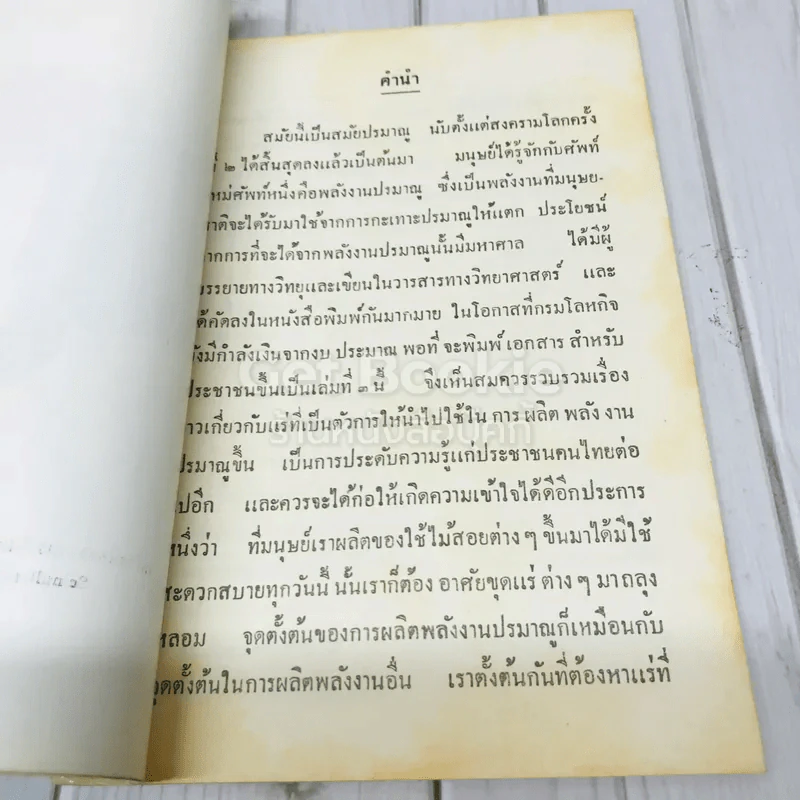 คำนำ
สมัยนี้เป็นสมัยปรมาณู นับตั้งแต่สงครามโลกครั้ง
ที่ ๒ ได้สิ้นสุดลงแล้วเป็นต้นมา มนุษย์ได้รู้จักกับศัพท์
ใหม่ศัพท์หนึ่งคือพลังงานปรมาณู ซึ่งเป็นพลังงานที่มนุษย-
ชาติจะได้รับมาใช้จากการกะเทาะปรมาณูให้แตก ประโยชน์
จากการที่จะได้จากพลังงานปรมาณูนั้นมีมหาศาล ได้มีผู้
บรรยายทางวิทยุและเขียนในวารสารทางวิทยาศาสตร์ และ
ได้คัดลงในหนังสือพิมพ์กันมากมาย ในโอกาสที่กรมโลหกิจ
ยังมีกำลังเงินจากงบ ประมาณ พอที่ จะพิมพ์ เอกสาร สำหรับ
ประชาชนขึ้นเป็นเล่มที่ ๓ นี้ จึงเห็นสมควรรวบรวมเรื่อง
ราวเกี่ยวกับแร่ที่เป็นตัวการให้นำไปใช้ใน การ ผลิต พลัง งาน
ปรมาณูขึ้น เป็นการประดับความรู้แก่ประชาชนคนไทยต่อ
ไปอีก และควรจะได้ก่อให้เกิดความเข้าใจได้ดีอีกประการ
หนึ่งว่า ที่มนุษย์เราผลิตของใช้ไม้สอยต่าง ๆ ขึ้นมาได้มีใช้
สะดวกสบายทุกวันนี้ นั้นเราก็ต้อง อาศัยขุดแร่ ต่าง ๆ มาถลุง
หลอม จุดตั้งต้นของการผลิตพลังงานปรมาณูก็เหมือนกับ
จุดตั้งต้นในการผลิตพลังงานอื่น เราตั้งต้นกันที่ต้องหาแร่ที่
Get Bookie
ร้านหนังสือบุ๊คกี้